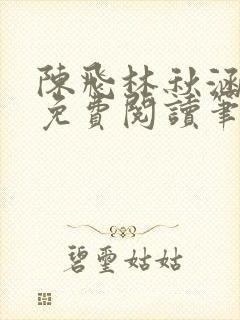 陳飛林秋涵
免費閱讀筆
碧璽姑姑